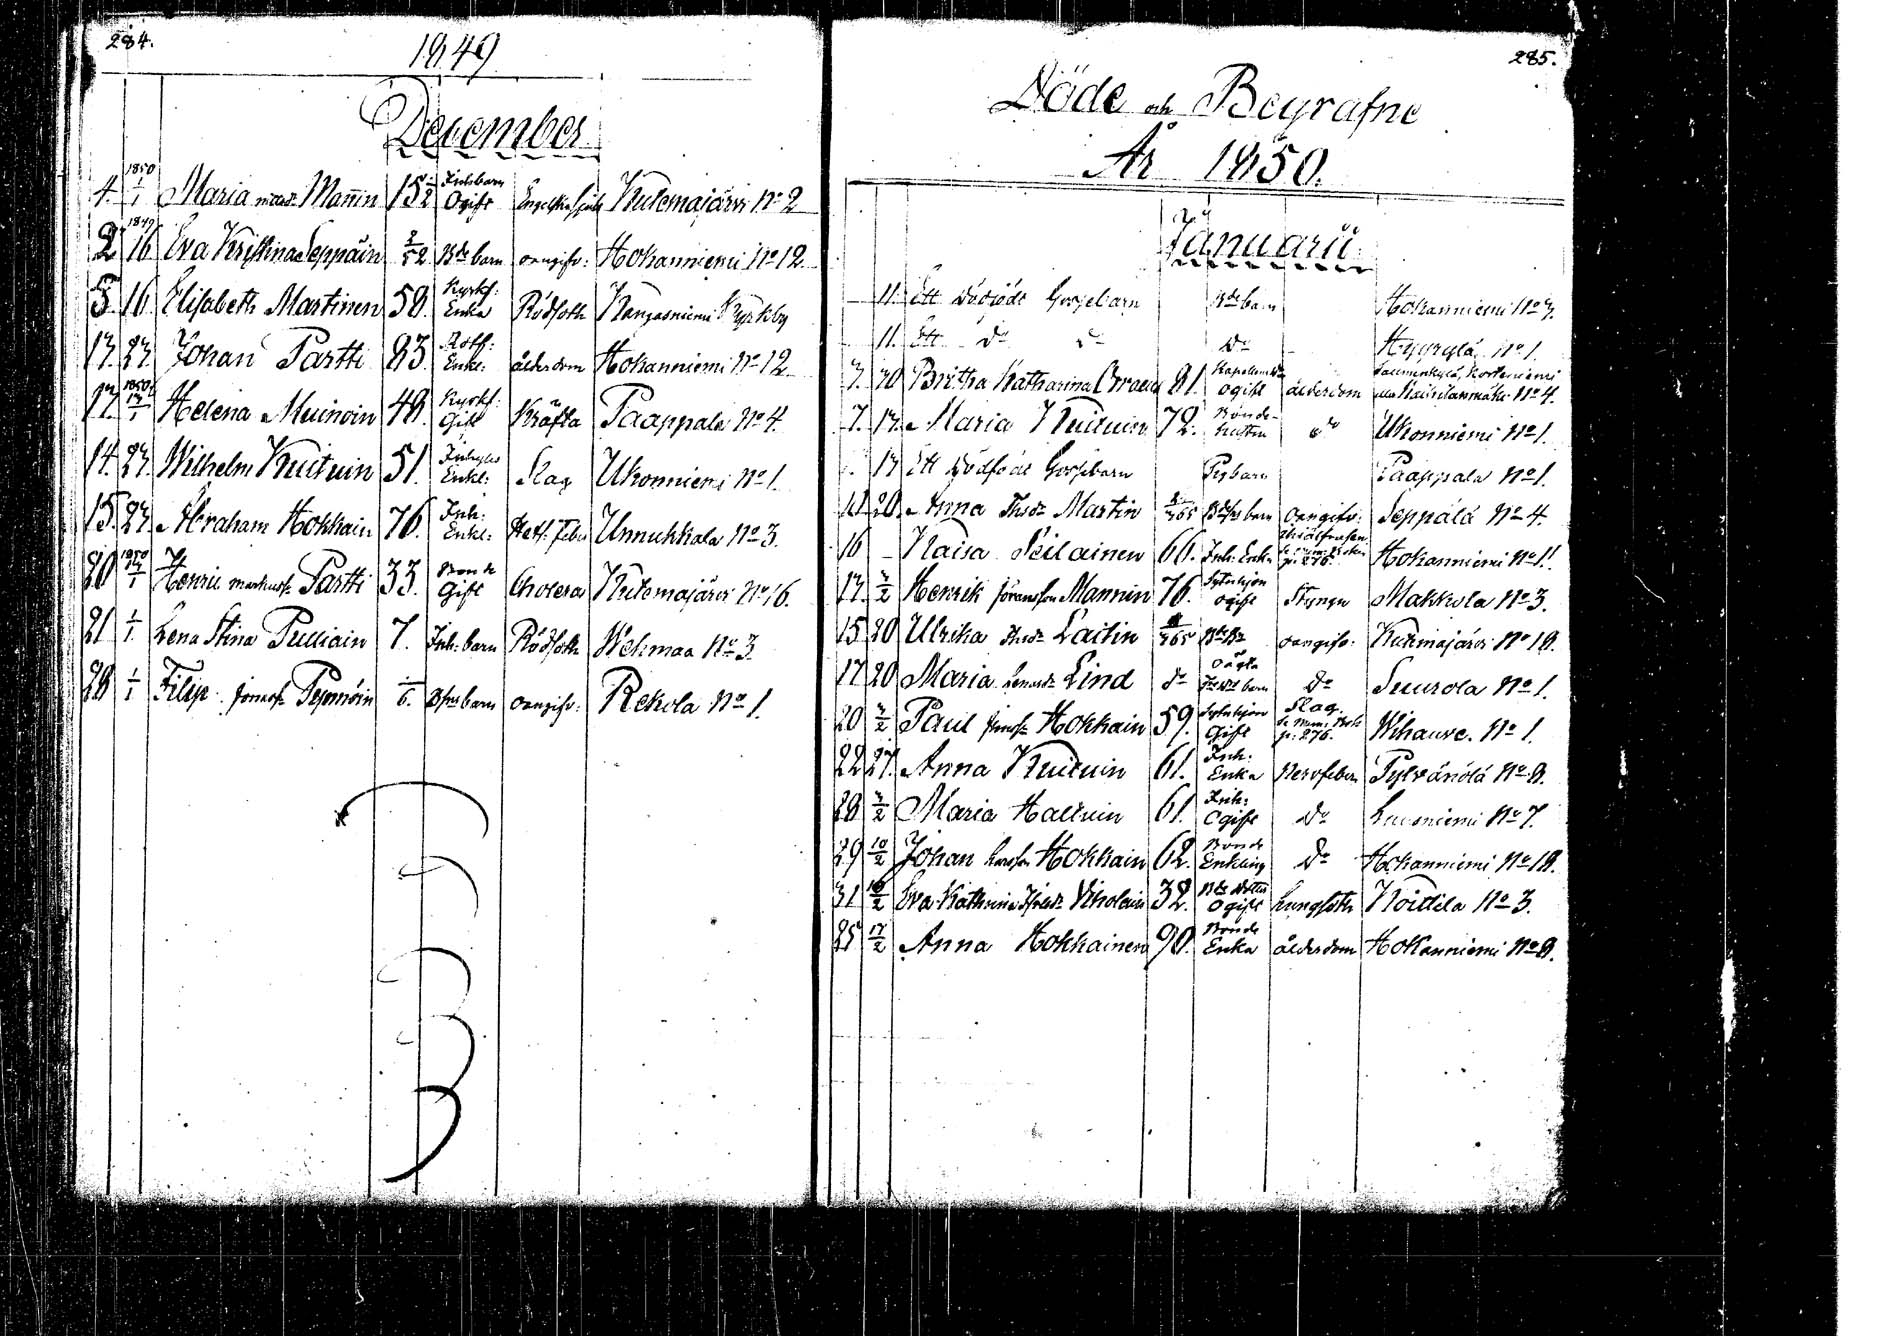 284.
1849
December
4. 1850 1/1 Maria Mannin 15 1/2 Inh barn Ogift Engelska sjuk Kutemajärvi No 2
2 1849 16 Eva Kristina Seppäin 2/52 Bde barn oangifv: Hokanniemi No 12
5. 16. Elisabeth Martinen 58. Kyrkf: Enka Rödsoth Kangasniemi Kyrkby
13. 27. Johan Partti 83. Rotf: Enkl: ålderdom Hokanniemi No 12
17. 1850 13/1 Helena Muinoin 48. Kyrkf: Gift Kräfta Paappala No 4.
14. 27. Wilhelm Kuituin 51. Inhyses Enkl: Slag Ukonniemi No 1.
15. 27. Abraham Hokkain 76. Inh: Enkl: Hetf. feber Unnukkala No 3.
20 1850 Henric markusk Partti 33. Bonde Gift Cholera Kutemajärvi No 16.
21 1/1 Lena Stina Pulliain 7. Inh: barn Rödsoth Wehmaa No 3.
28 1/1 Filip 6. barn oangifv: Rekola No 1.
285.
Döde och Begrafne
År 1850.
Januarii
11. Ett dödfödt Gossebarn Bde barn Hokanniemi No 3.
11. Ett do do do Hyyrylä No 1.
3. 20 Britha Katharina 81. Ogift ålderdom No 4.
7. 13. Maria Kuituin 72. Bonde hustru do Ukonniemi No 1.
13 Ett dödfödt Gossbarn Paappala No 1.
11 20. Anna Martin /365 barn oangifv: Seppälä No 4.
16 – Kaisa Seilainen 66. Inh. Enka p: 276. Hokanniemi No 11.
13. 3/2 Henrik Göransson Mannin 76. Sytnhjon Ogift Styngn Makkola No 3.
15 20 Ulrika Laitin /365 oangifv: Kutemajärvi No 18.
17 20 Maria Lind do Oägta barn do Suurola No 1.
20 3/2 Paul Hokkain 59. Sytnhjon Gift Slag. p: 276. Wihavu. No 1.
22 27. Anna Kuituin 61. Inh: Enka Nervfeber Pylvänälä No 8.
28 3/2 Maria Halttuin 61. Inh: Ogift do Luusniemi No 7.
29 10/2 Johan Hokkain 62. Bonde Enkling do Hokanniemi No 18.
31 10/2 Eva Kathrina 32. Bds dotter Ogift Lungsoth Koittila No 3.
25 17/2 Anna Hokkainen 90. Bonde Enka ålderdom Hokanniemi No 8.